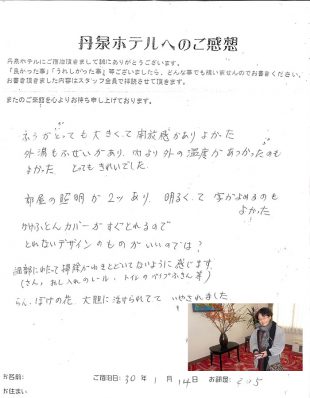 丹泉ホテルへのご感想
丹泉ホテルにご宿泊頂きまして誠にありがとうございます。
「良かった事」「うれしかった事」等ございましたら、どんな事でも構いませんのでお書きください。
お書き頂きました内容はスタッフ全員で拝読させて頂きます。
またのご来館を心よりお待ち申し上げております。
ふろがとっても大きくて開放感がありよかった
外湯もふぜいがあり、内より外の温度があつかったのも
よかった とってもきれいでした。
部屋の照明が2ッあり、明るくて 字がよめるのも
よかった
かけふとんカバーがすぐとれるので
とれないデザインのものがいいのでは?
細部にわたって掃除がいきとどいてないように感じます
(さん、おし入れのレール、トイレのパイプふきん等)
らん、ぼけの花、大胆に活けられてて いやされました
お名前:
ご宿泊日: 30 年 1 月 14 日 お部屋: 205
お住まい